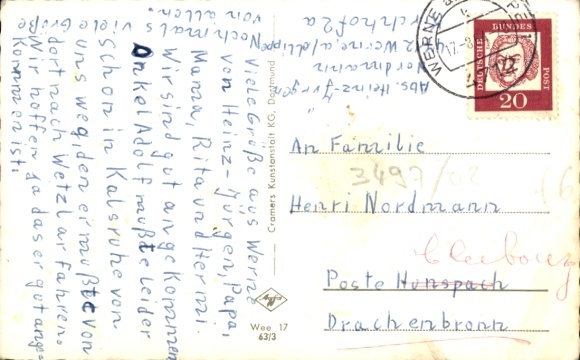 Viele Grüße aus Werne
von Heinz-Jürgen, Papa,
Mama, Rita und Hermi.
Wir sind gut angekommen
Onkel Adolf mußte leider
schon in Kalsruhe von
uns weg, den er mußte von
dort nach Wetzlar fahren.
Wir hoffen ja das er gut ange=
kommen ist.
Nochmals viele Grüße
von allen.
Abs. Heinz-Jürgen
Nordmann
Werne a/d Lippe
Cramers Kunstanstalt KG, Dortmund
Agfa
Wee 17
63/3
WERNE
DEUTSCHE BUNDESPOST
20
An Familie
3497/02
Henri Nordmann
Cleebourg
Poste Hunspach
Drachenbronn